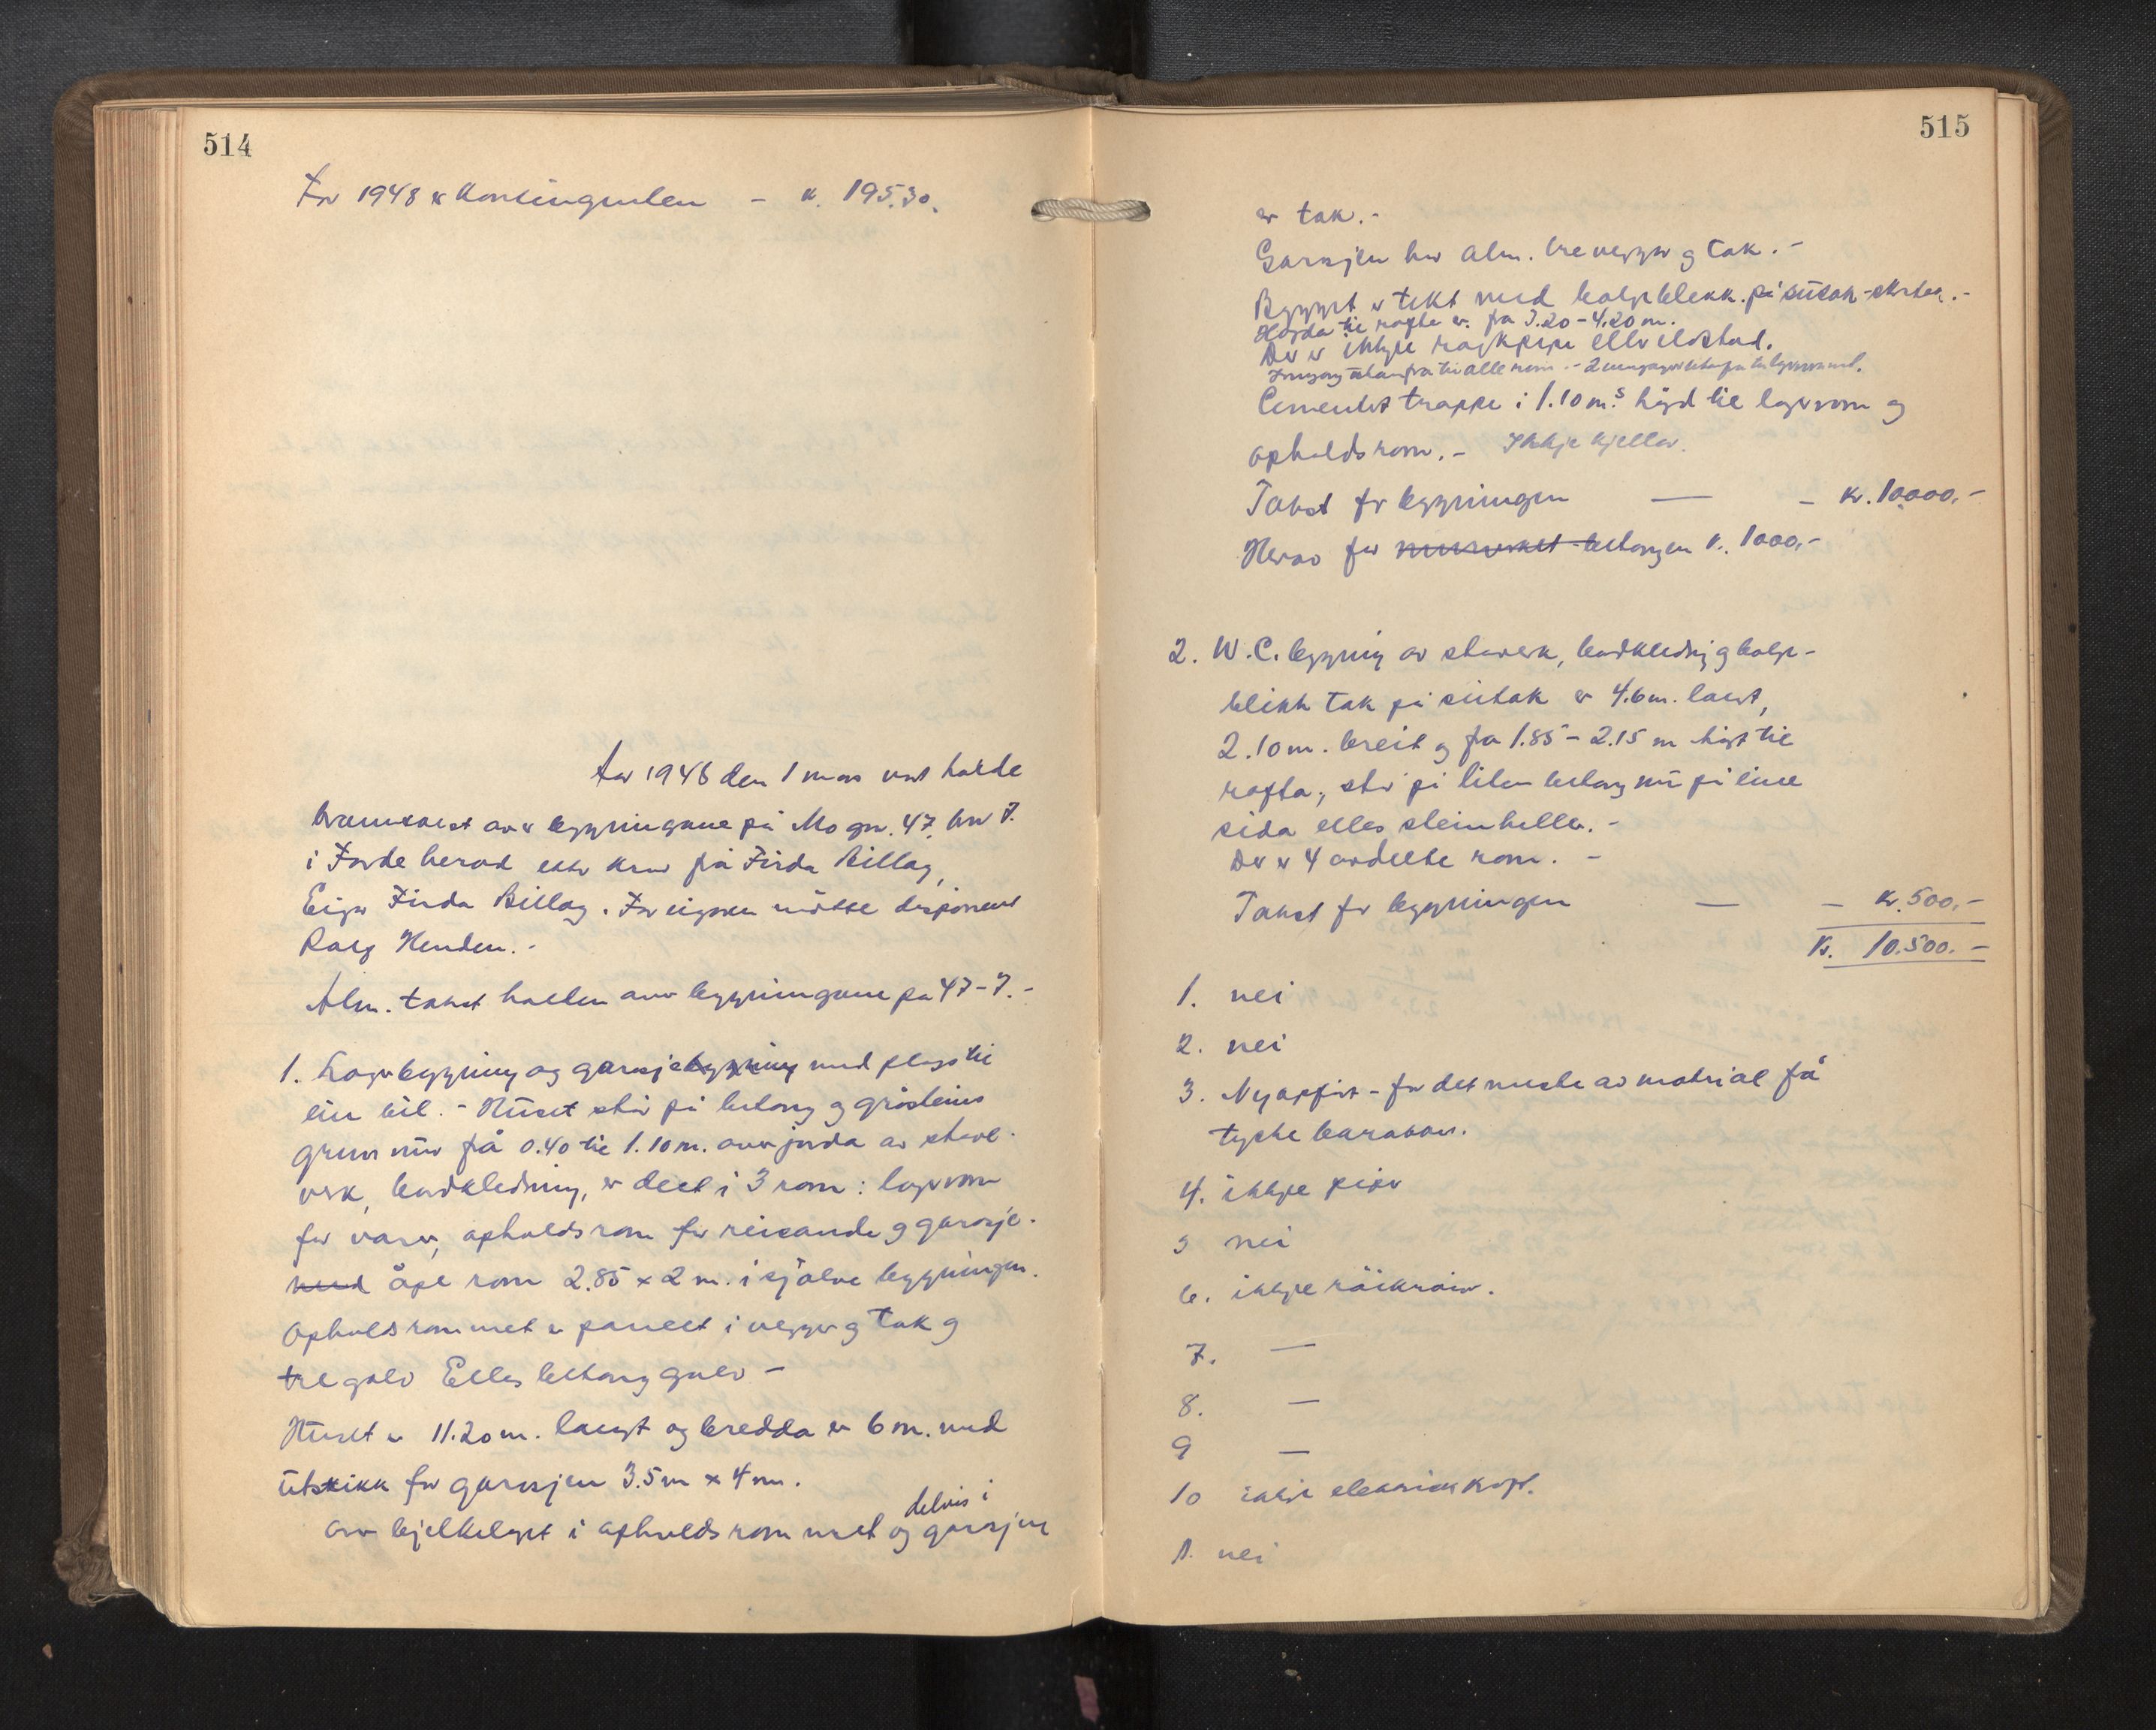 514
For 1948 er kontingenten - kr. 195.30.
År 1948 den 1 mars vart halde
branntakst over bygningane på Mo gnr. 47, bnr 7.
i Førde herad etter krav frå Firda Billag,
Eigar Firda Billag. For eigaren møtte disponent
Henden. -
Alm. takst halden over bygningane på 47-7. -
1. Lagerbygning og garasjebygning med plass til
ein bil. - Huset står på betong og gråsteins
grunnmur frå 0.40 til 1.10 m. over jorda av stav-
verk, bordkledning, er delt i 3 rom: lagerrom
for varer, opholdsrom for reisande og garasje.
med åpe rom 2.85 x 2 m. i sjølve bygningen.
Opholdsrommet er panelt i vegger og tak og
tregolv Elles betonggolv -
Huset er 11.20 m. langt og bredda er 6 m. med
utstikk for garasjen 3.5 m x 4 m.
delvis i
Over bjelkelaget i opholdsrommet og garasjen
515
er tak. -
Garasjen har alm. trevegger og tak. -
Bygget er tekt med bølgeblekk på sutak -
Høgda til rafta er fra 3.20 - 4.20 m.
Der er ikkje røykpipe eller eldstad.
Inngang utanfra til alle rom. - 2
Cementert trappe i 1.10 m.s høgd til lagerrom og
opholdsrom. - Ikkje kjellar.
Takst for bygningen — - kr. 10000.-
Herav for murverket betongen kr. 1000,-
2. W.C. bygning av staverk, bordkledning og bølge-
blikk tak på sutak er 4.6 m. langt,
2.10 m. breit og fra 1.85 - 2.15 m høgt til
rafta, står på liten betong mur på eine
sida elles steinheller. -
Der er 4 avdelte rom. -
Takst for bygningen — - kr. 500,-
kr. 10.500. -
1. nei
2. nei
3. Nyoppført - for det meste av material frå
tyske barakker.
4. ikkje piper
5 nei
6. ikkje røikrøir.
7. —
8. —
9 —
10 ikkje elektrisk
1. nei